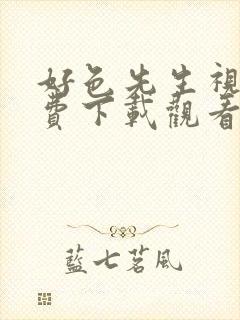 好色先生視
費下載觀看
藍七茗風